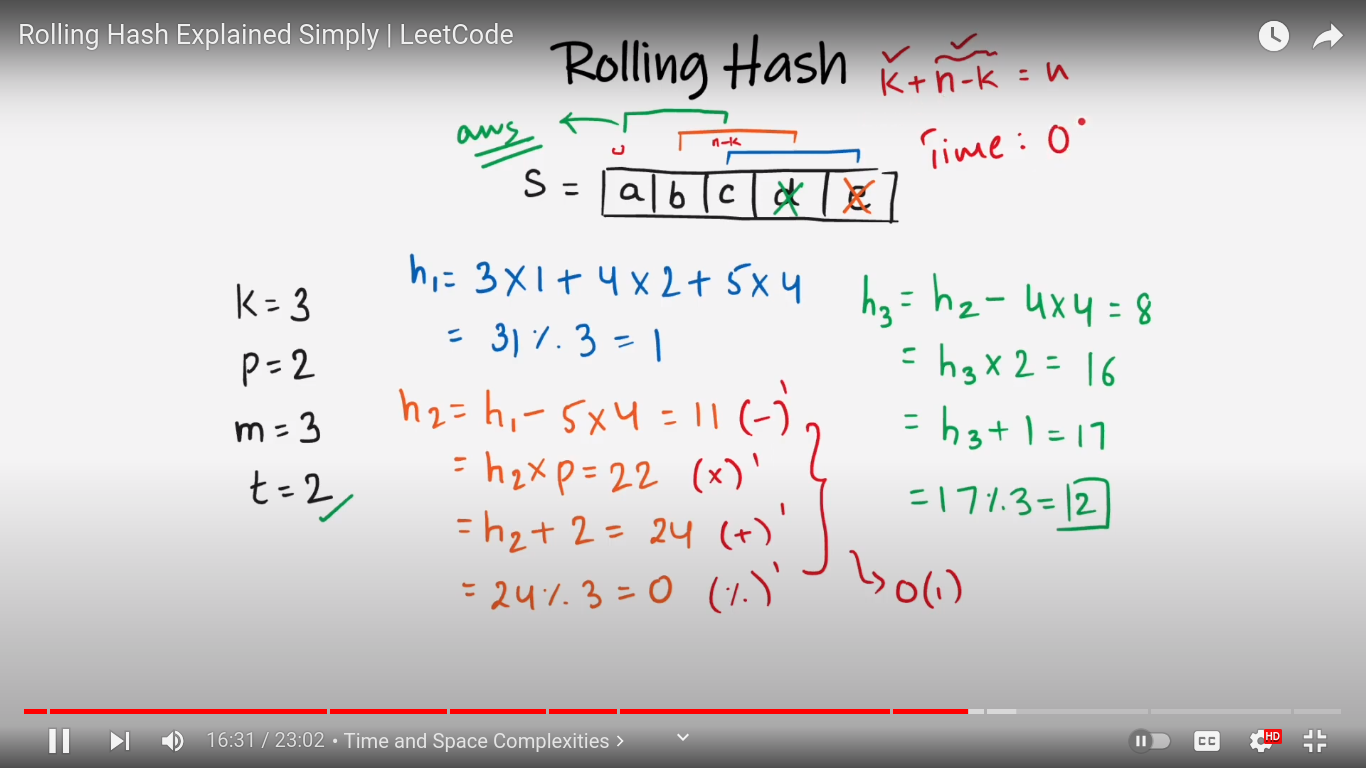 Rolling Hash Explained Simply | LeetCode
Rolling Hash
k + n-k = n
ans
n-k
Time: O
S = a b c d e
k = 3
p = 2
m = 3
t = 2
h₁ = 3 x 1 + 4 x 2 + 5 x 4
= 31 % 3 = 1
h₂ = h₁ - 5 x 4 = 11 (-)'
= h₂ x p = 22 (x)'
= h₂ + 2 = 24 (+)'
= 24 % 3 = 0 (%)'
O(1)
h₃ = h₂ - 4 x 4 = 8
= h₃ x 2 = 16
= h₃ + 1 = 17
= 17 % 3 = 2
16:31 / 23:02 • Time and Space Complexities >
CC
HD